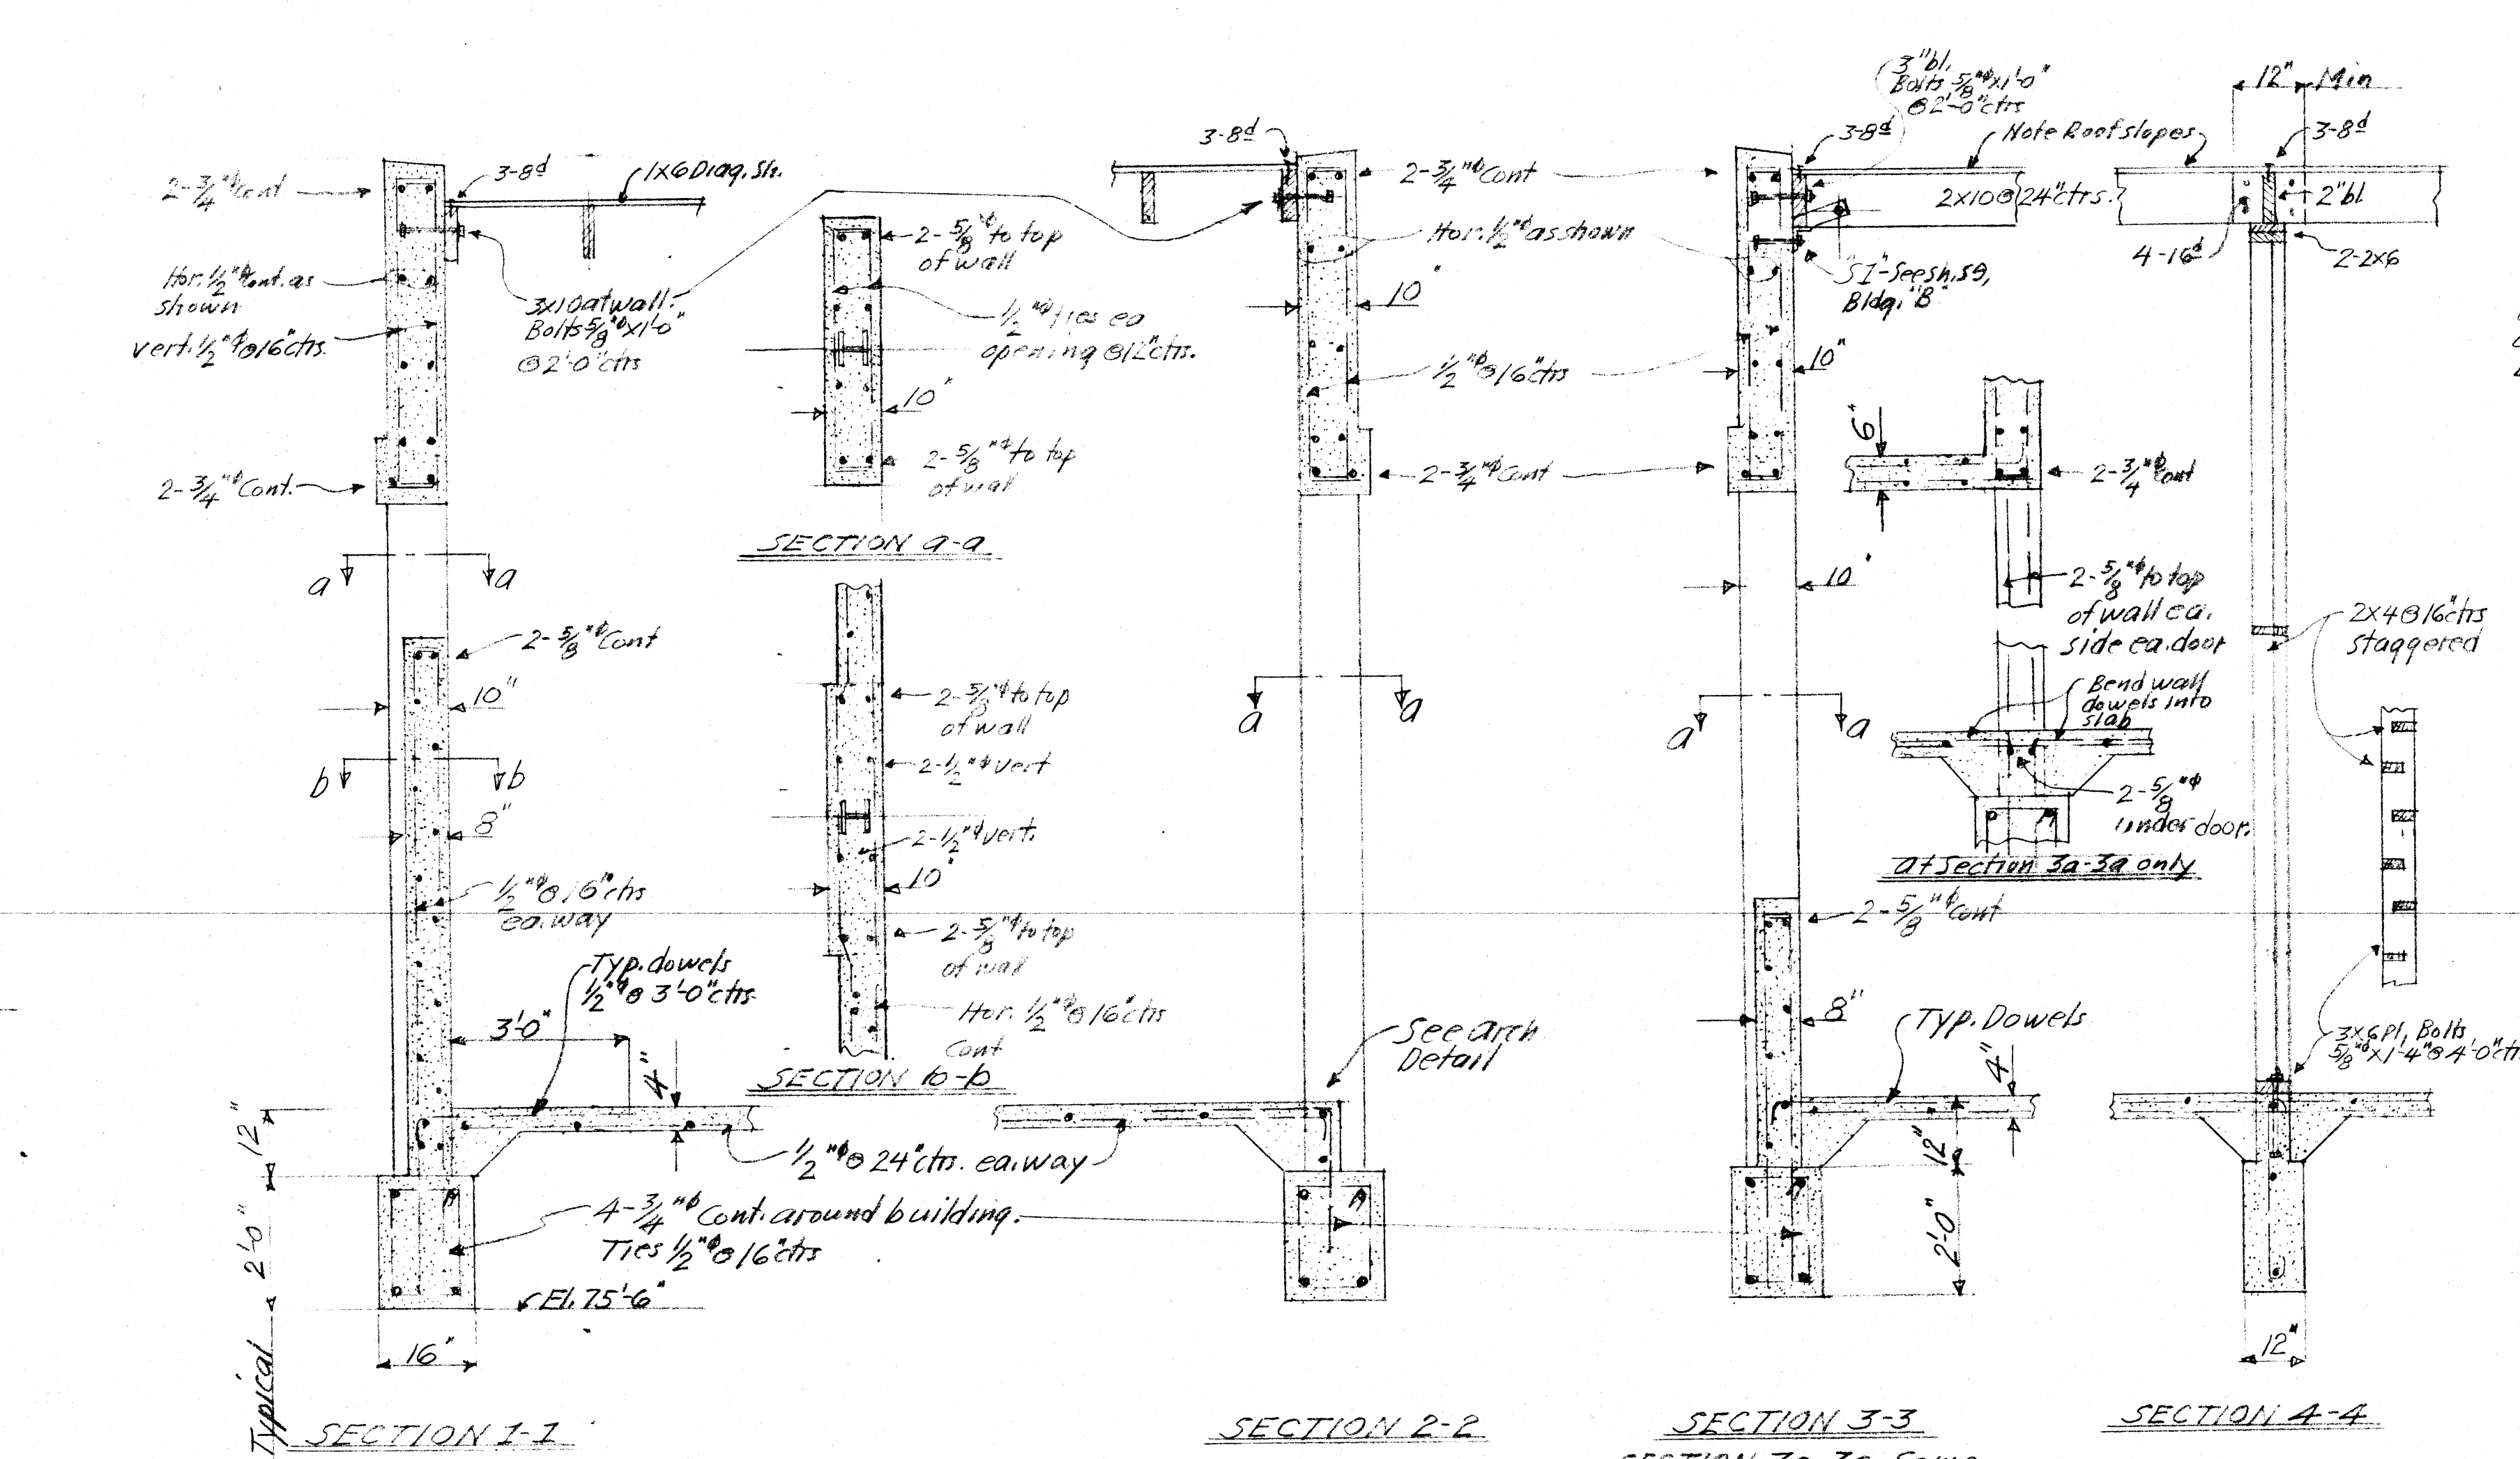 2-3/4"φ Cont
3-8d
1x6 Diag. Sh.
Hor. 1/2"φ Cont. as
shown
vert. 1/2"φ @ 16"ctrs.
3x10 at wall.
Bolts 5/8"φ x 1'-0"
@ 2'-0"ctrs
2-3/4"φ Cont.
a
a
2-5/8"φ Cont
10"
b
b
8"
1/2"φ @ 16"ctrs
ea. way
Typ. dowels
1/2"φ @ 3'-0"ctrs
3'-0"
4"
12"
2'-0"
Typical
1/2"φ @ 24"ctrs. ea. way
4-3/4"φ Cont. around building.
Ties 1/2"φ @ 16"ctrs
El. 75'-6"
16"
SECTION 1-1
2-5/8"φ to top
of wall
1/2"φ ties ea
opening @ 12"ctrs.
10"
2-5/8"φ to top
of wall
SECTION a-a
2-5/8"φ to top
of wall
2-1/2"φ vert
2-1/2"φ vert.
10"
2-5/8"φ to top
of wall
Hor. 1/2"φ @ 16"ctrs
Cont
SECTION b-b
3-8d
2-3/4"φ Cont
Hor. 1/2"φ as shown
10"
1/2"φ @ 16"ctrs
2-3/4"φ Cont
a
a
See Arch
Detail
SECTION 2-2
3"bl.
Bolts 5/8"φ x 1'-0"
@ 2'-0"ctrs
3-8d
Note Roof slopes
2x10 @ 24"ctrs.
"S1"-See sh. S9,
Bldg. "B"
10"
6"
2-3/4"φ Cont
10"
2-5/8"φ to top
of wall ea.
side ea. door
a
a
Bend wall
dowels into
slab
2-5/8"φ
under door.
at Section 3a-3a only
2-5/8"φ Cont
8"
Typ. Dowels
4"
12"
2'-0"
SECTION 3-3
SECTION 3a-3a Same
12" Min
3-8d
2"bl
4-16d
2-2x6
2x4 @ 16"ctrs
staggered
3x6 pl, Bolts
5/8"φ x 1'-4" @ 4'-0"ctr
12"
SECTION 4-4